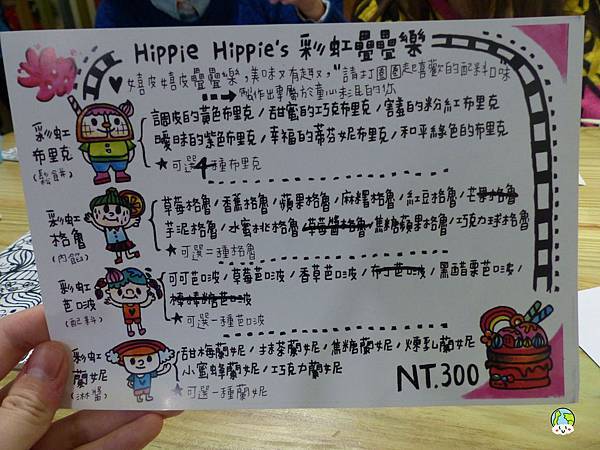 Hippie Hippie's 彩虹疊疊樂
♥嬉皮嬉皮疊疊樂,美味又有趣,"請打圈圈起喜歡的配料口味"
製作出專屬於童心未泯的你
彩虹布里克(鬆餅)
調皮的黃色布里克/甜蜜的巧克布里克/害羞的粉紅布里克
曖昧的紫色布里克/幸福的蒂芬妮布里克/和平綠色的布里克
★可選4種布里克
彩虹格魯(內餡)
草莓格魯/香蕉格魯/蘋果格魯/麻糬格魯/紅豆格魯/芒果格魯
芋泥格魯/水蜜桃格魯/草莓醬格魯/焦糖蘋果格魯/巧克力球格魯
★可選二種格魯
彩虹芭啵(配料)
可可芭啵/草莓芭啵/香草芭啵/布丁芭啵/黑醋栗芭啵/
棉花糖芭啵
★可選一種芭啵
彩虹蘭妮(淋醬)
甜梅蘭妮/抹茶蘭妮/焦糖蘭妮/煉乳蘭妮
小蜜蜂蘭妮/巧克力蘭妮
★可選一種蘭妮
NT.300